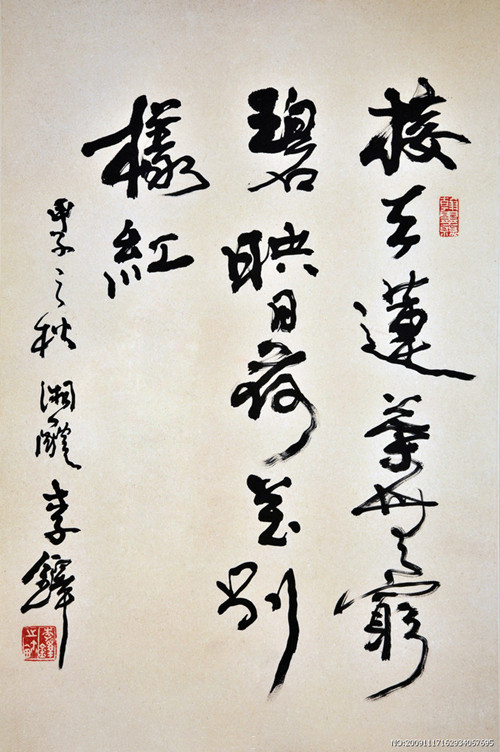 接天蓮葉無窮
碧映日荷花別
樣紅
甲子之秋湘醴李鐸
NO:20091117162934057695